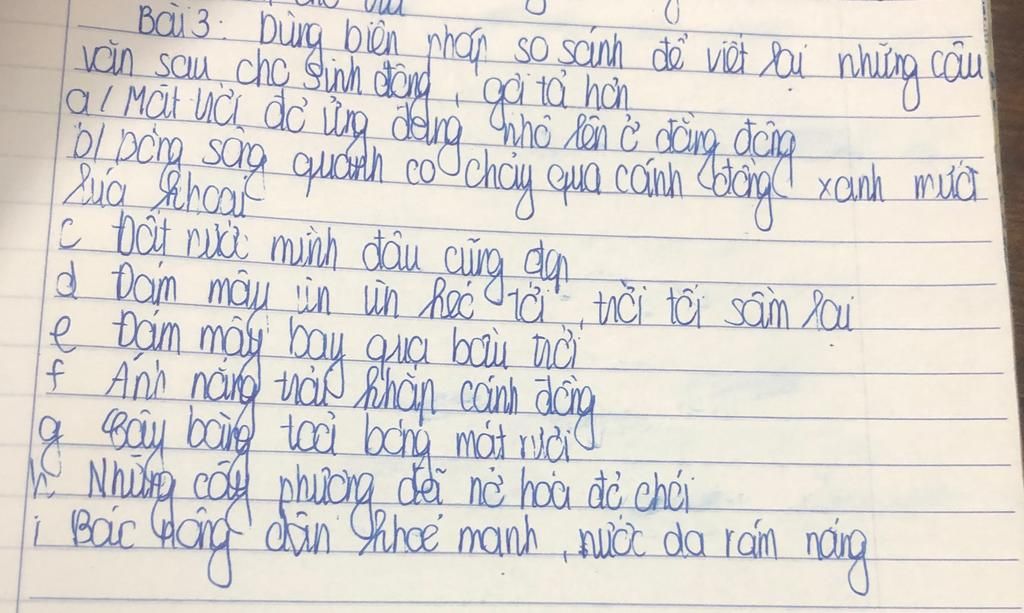 Bài 3: Dùng biện pháp so sánh để viết lại những câu
văn sau cho sinh động, gợi tả hơn
a/ Mặt trời đỏ ửng đang nhô lên ở đằng đông
b/ Dòng sông quanh co chảy qua cánh đồng xanh mướt
lúa khoai
c Đất nước mình đâu cũng đẹp
d Đám mây ùn ùn kéo tới, trời tối sầm lại
e Đám mây bay qua bầu trời
f Ánh nắng trải khắp cánh đồng
g Cây bàng toả bóng mát rượi
h Những cây phượng đã nở hoa đỏ chói
i Bác nông dân khoẻ mạnh, nước da rám nắng